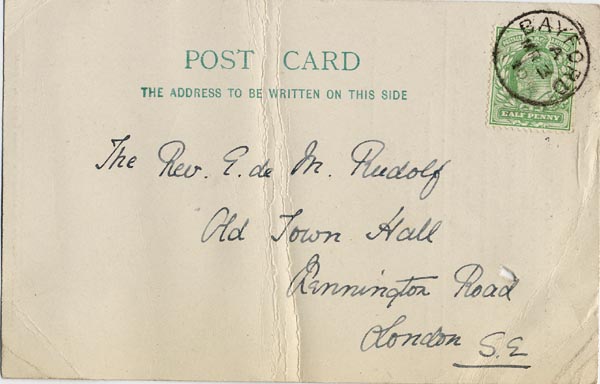 POST CARD
THE ADDRESS TO BE WRITTEN ON THIS SIDE
BAYFORD
A
HALF PENNY
The Rev. E. de M. Rudolf
Old Town Hall
Kennington Road
London S.E